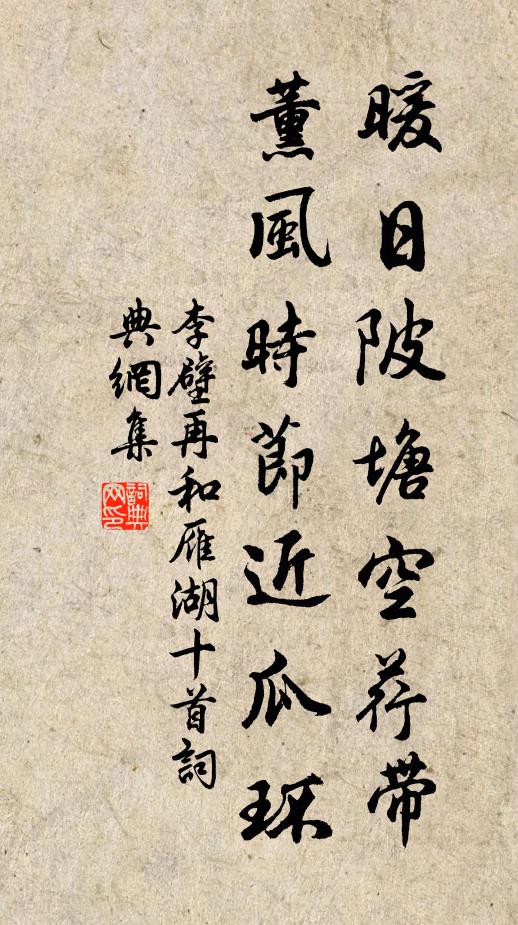 暖日陂塘空荇帶
薰風時節近瓜琛
李壁再和雁湖十首詞
典網集
詞典網印